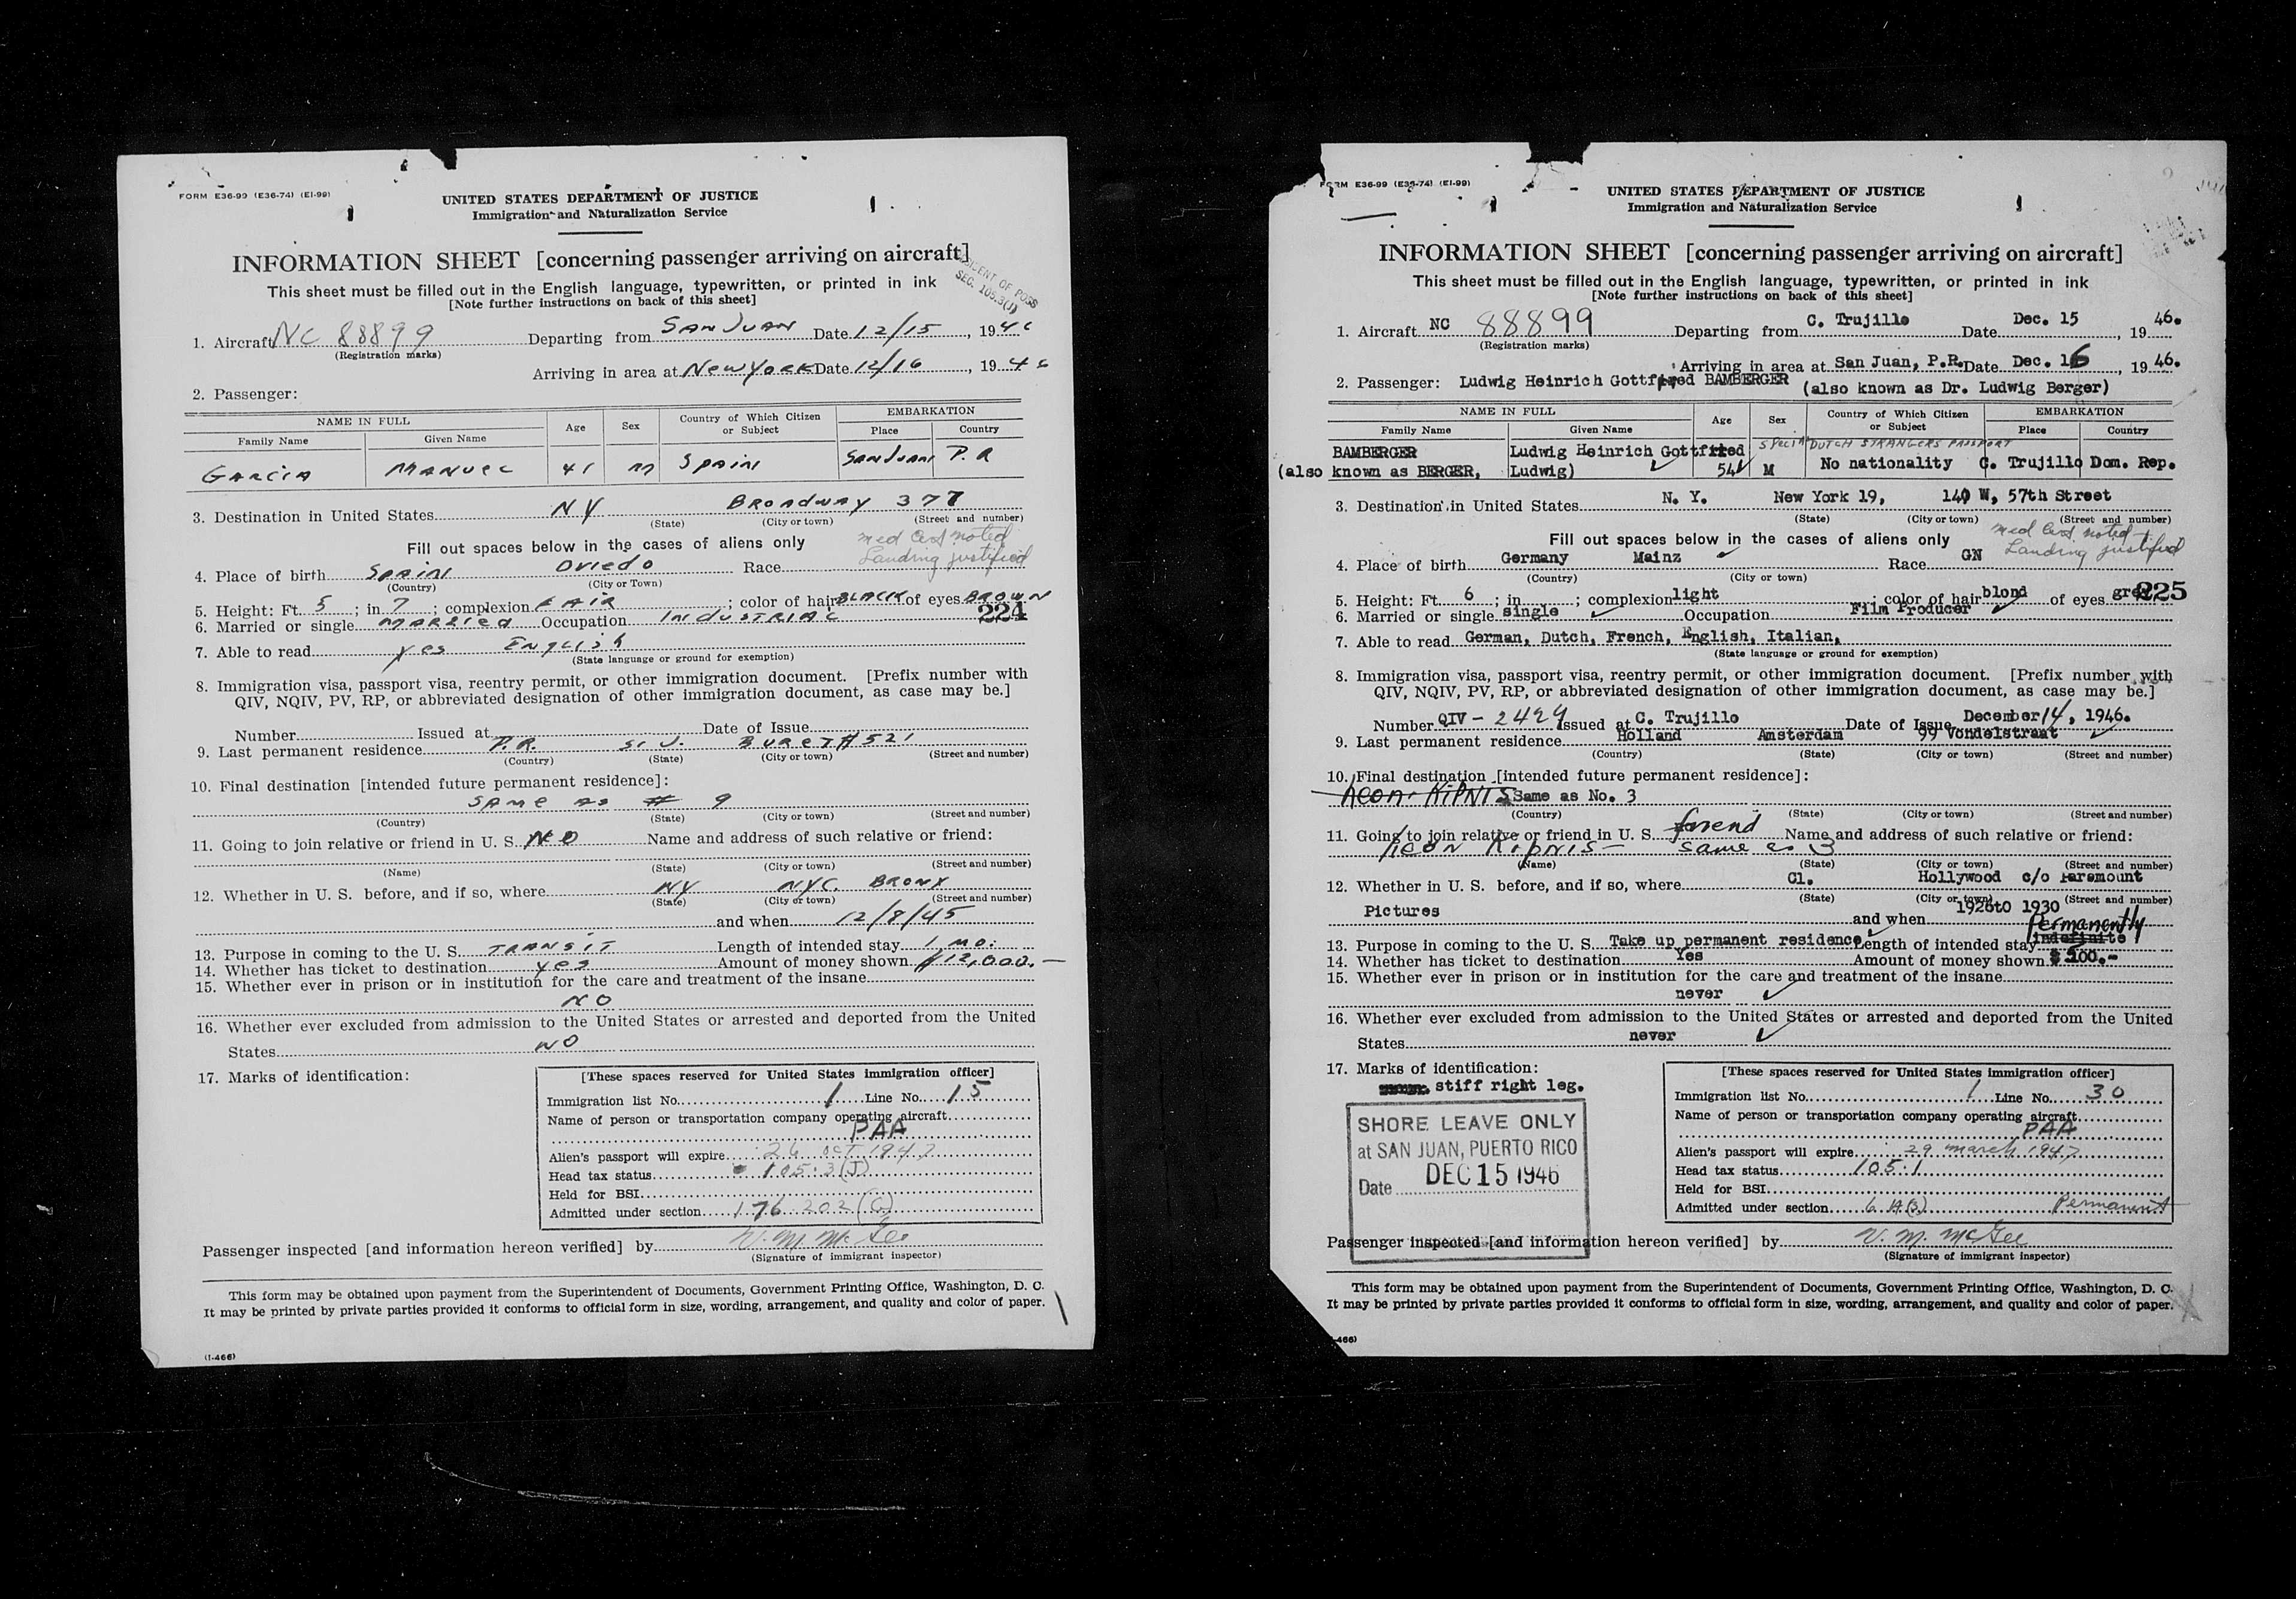 FORM E36-99 (E36-74) (EI-99)
UNITED STATES DEPARTMENT OF JUSTICE
Immigration and Naturalization Service
INFORMATION SHEET [concerning passenger arriving on aircraft]
This sheet must be filled out in the English language, typewritten, or printed in ink
[Note further instructions on back of this sheet]
SEC. 105.3(J)
1. Aircraft NC 88899 Departing from SAN JUAN Date 12/15, 1946
(Registration marks)
Arriving in area at New York Date 12/16, 1946
2. Passenger:
NAME IN FULL Age Sex Country of Which Citizen or Subject EMBARKATION
Family Name Given Name Place Country
GARCIA MANUEL 41 M SPAIN SAN JUAN P.R
3. Destination in United States NY BROADWAY 377
(State) (City or town) (Street and number)
Fill out spaces below in the cases of aliens only
med Cert noted
Landing justified
4. Place of birth SPAIN OVIEDO Race
(Country) (City or Town)
5. Height: Ft. 5; in 7; complexion FAIR; color of hair BLACK of eyes BROWN
224
6. Married or single MARRIED Occupation INDUSTRIAL
7. Able to read yes ENGLISH
(State language or ground for exemption)
8. Immigration visa, passport visa, reentry permit, or other immigration document. [Prefix number with
QIV, NQIV, PV, RP, or abbreviated designation of other immigration document, as case may be.]
Number Issued at Date of Issue
9. Last permanent residence P.R. S. J. # 521
(Country) (State) (City or town) (Street and number)
10. Final destination [intended future permanent residence]:
SAME AS # 9
(Country) (State) (City or town) (Street and number)
11. Going to join relative or friend in U. S. NO Name and address of such relative or friend:
(Name) (State) (City or town) (Street and number)
12. Whether in U. S. before, and if so, where NY NYC. BRONX
(State) (City or town) (Street and number)
and when 12/8/45
13. Purpose in coming to the U. S. TRANSIT Length of intended stay 1 MO.
14. Whether has ticket to destination yes Amount of money shown $12,000.—
15. Whether ever in prison or in institution for the care and treatment of the insane
NO
16. Whether ever excluded from admission to the United States or arrested and deported from the United
States NO
17. Marks of identification:
[These spaces reserved for United States immigration officer]
Immigration list No. 1 Line No. 15
Name of person or transportation company operating aircraft
PAA
Alien's passport will expire 26 OCT 1947
Head tax status 105.3(J)
Held for BSI
Admitted under section 176.202(G)
Passenger inspected [and information hereon verified] by V. M. McGee
(Signature of immigrant inspector)
This form may be obtained upon payment from the Superintendent of Documents, Government Printing Office, Washington, D. C.
It may be printed by private parties provided it conforms to official form in size, wording, arrangement, and quality and color of paper.
(I-466)
FORM E36-99 (E36-74) (EI-99)
UNITED STATES DEPARTMENT OF JUSTICE
Immigration and Naturalization Service
INFORMATION SHEET [concerning passenger arriving on aircraft]
This sheet must be filled out in the English language, typewritten, or printed in ink
[Note further instructions on back of this sheet]
1. Aircraft NC 88899 Departing from C. Trujillo Date Dec. 15, 1946.
(Registration marks)
Arriving in area at San Juan, P.R. Date Dec. 16, 1946.
2. Passenger: Ludwig Heinrich Gottfried BAMBERGER (also known as Dr. Ludwig Berger)
NAME IN FULL Age Sex Country of Which Citizen or Subject EMBARKATION
Family Name Given Name Place Country
SPECIAL DUTCH STRANGERS PASSPORT
BAMBERGER Ludwig Heinrich Gottfried
(also known as BERGER, Ludwig) 54 M No nationality C. Trujillo Dom. Rep.
3. Destination in United States N. Y. New York 19, 140 W. 57th Street
(State) (City or town) (Street and number)
Fill out spaces below in the cases of aliens only
med Cert noted
Landing justified
4. Place of birth Germany Mainz Race GN
(Country) (City or town)
5. Height: Ft. 6; in; complexion light; color of hair blond of eyes grey
225
6. Married or single single Occupation Film Producer
7. Able to read German, Dutch, French, English, Italian,
(State language or ground for exemption)
8. Immigration visa, passport visa, reentry permit, or other immigration document. [Prefix number with
QIV, NQIV, PV, RP, or abbreviated designation of other immigration document, as case may be.]
Number QIV - 2424 Issued at C. Trujillo Date of Issue December 14, 1946.
9. Last permanent residence Holland Amsterdam 99 Vondelstraat
(Country) (State) (City or town) (Street and number)
10. Final destination [intended future permanent residence]:
Leon KIPNIS Same as No. 3
(Country) (State) (City or town) (Street and number)
11. Going to join relative or friend in U. S. friend Name and address of such relative or friend:
Leon KIPNIS - same as 3
(Name) (State) (City or town) (Street and number)
12. Whether in U. S. before, and if so, where Cl. Hollywood c/o Paramount
(State) (City or town) (Street and number)
Pictures and when 1926 to 1930
Permanently
13. Purpose in coming to the U. S. Take up permanent residence Length of intended stay indefinite
14. Whether has ticket to destination Yes Amount of money shown $ 100.-
15. Whether ever in prison or in institution for the care and treatment of the insane
never
16. Whether ever excluded from admission to the United States or arrested and deported from the United
States never
17. Marks of identification:
stiff right leg.
SHORE LEAVE ONLY
at SAN JUAN, PUERTO RICO
Date DEC 15 1946
[These spaces reserved for United States immigration officer]
Immigration list No. 1 Line No. 30
Name of person or transportation company operating aircraft
PAA
Alien's passport will expire 29 march 1947
Head tax status 105.1
Held for BSI
Admitted under section 6 A(3) Permanent
Passenger inspected [and information hereon verified] by V. M. McGee
(Signature of immigrant inspector)
This form may be obtained upon payment from the Superintendent of Documents, Government Printing Office, Washington, D. C.
It may be printed by private parties provided it conforms to official form in size, wording, arrangement, and quality and color of paper.